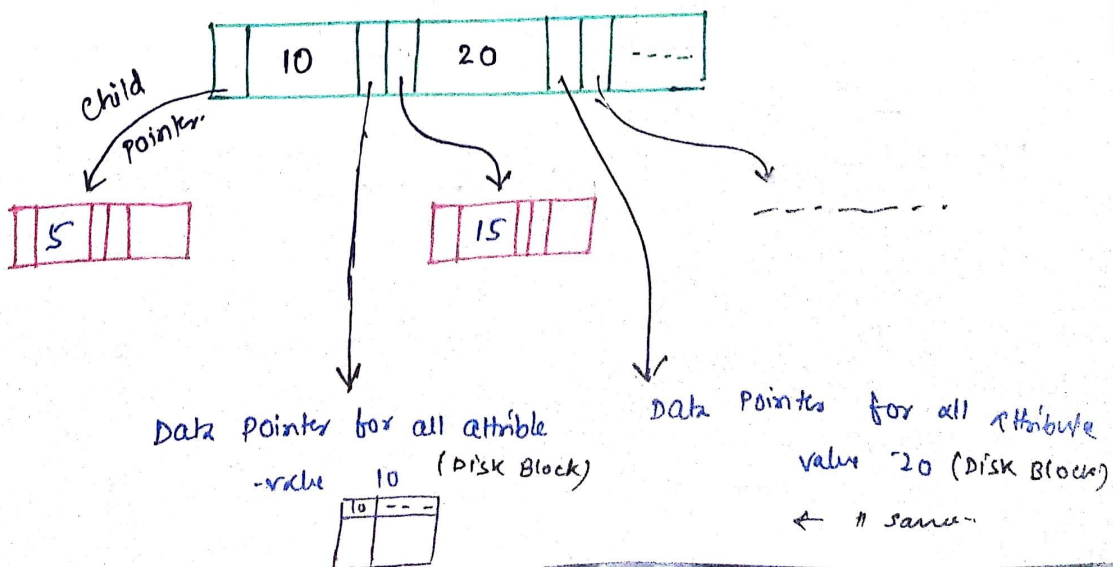 10 20 -----
Child
Pointer.
5 15
Data Pointer for all attrible
-value 10 (Disk Block)
10 -- -
Data Pointer for all attribute
value 20 (Disk Block)
← same